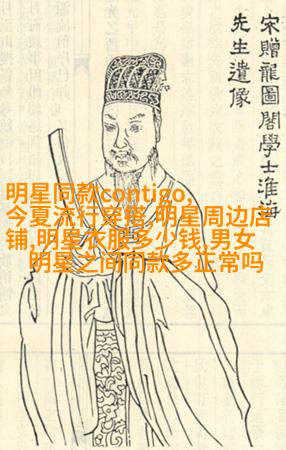 宋贈龍圖閣學士淮海
先生遺像
明星同款contigo,
今夏流行穿搭,明星周边店
铺,明星衣服多少钱,男女
明星之间同款多正常吗